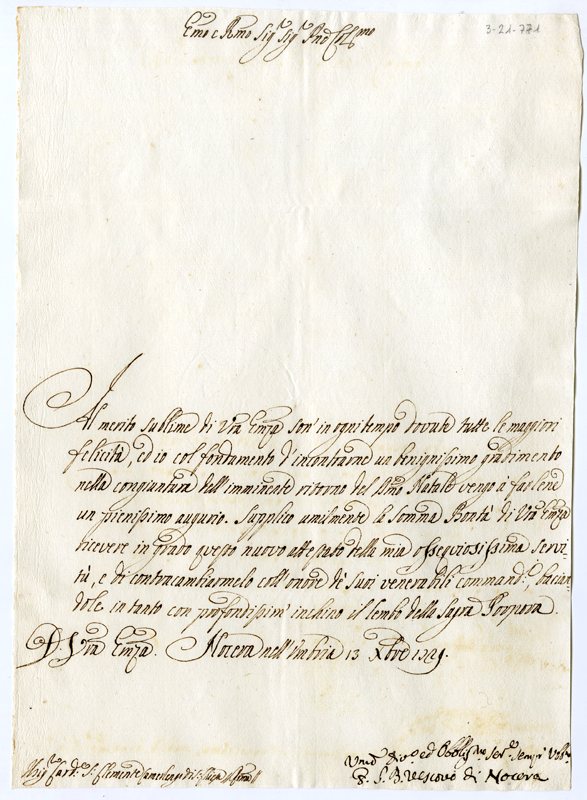 Emo e Rmo Sigr Sigr Pnē Colmo
3-21-771
Al merito sublime di Vra Emza son' in ogni tempo dovute tutte le maggiori
felicità, ed io col fondamento d'incontrarne un benignissimo gradimento
nella congiuntura dell'imminente ritorno del Smo Natale vengo à farlene
un pienissimo augurio. Supplico umilmente la somma Bontà di Vra Emza
ricevere in grado questo nuovo attestato della mia ossequiosissima servi-
tù, e di contracambiarmelo coll'onore de suoi venerabili command.ti, bacian-
dole in tanto con profondissim' inchino il lembo della Sagra Porpora.
D. Vra Emza. Nocera nell'Umbria 13 Xbre
Umo Divo ed Obblmo Serv sempre
Vescovo di Nocera
Sigr Card. S. Clemente